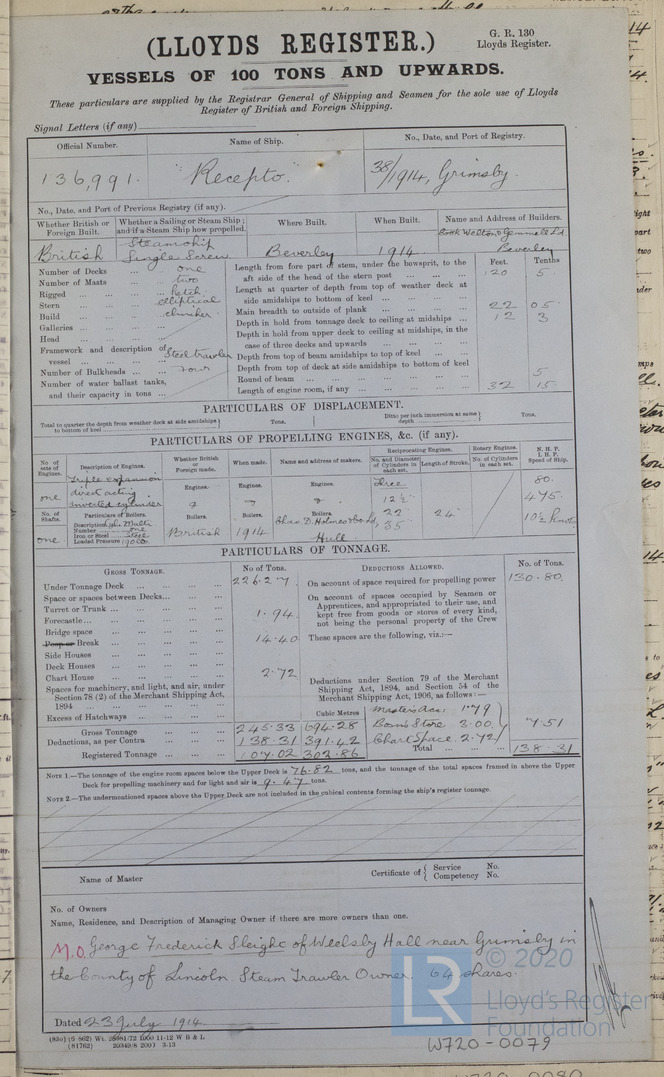 (LLOYDS REGISTER.)
G. R. 130
Lloyds Register.
VESSELS OF 100 TONS AND UPWARDS.
These particulars are supplied by the Registrar General of Shipping and Seamen for the sole use of Lloyds
Register of British and Foreign Shipping.
Signal Letters (if any)
Official Number. Name of Ship. No., Date, and Port of Registry.
136,991. "Recepto." 38/1914, Grimsby.
No., Date, and Port of Previous Registry (if any).
Whether British or Foreign Built. Whether a Sailing or Steam Ship; and if a Steam Ship how propelled. Where Built. When Built. Name and Address of Builders.
British Steamship Single Screw Beverley 1914 Cook Welton & Gemmell Ld. Beverley
Feet. Tenths
Number of Decks ... one
Number of Masts ... two
Rigged ... Ketch
Stern ... elliptical
Build ... clincher
Galleries ...
Head ...
Framework and description of vessel ... Steel trawler
Number of Bulkheads ... Four
Number of water ballast tanks, and their capacity in tons ...
Length from fore part of stem, under the bowsprit, to the aft side of the head of the stern post ... 120 5
Length at quarter of depth from top of weather deck at side amidships to bottom of keel ...
Main breadth to outside of plank ... 22 05
Depth in hold from tonnage deck to ceiling at midships ... 12 3
Depth in hold from upper deck to ceiling at midships, in the case of three decks and upwards ...
Depth from top of beam amidships to top of keel ...
Depth from top of deck at side amidships to bottom of keel
Round of beam ... 5
Length of engine room, if any ... 32 15
PARTICULARS OF DISPLACEMENT.
Total to quarter the depth from weather deck at side amidships to bottom of keel Tons. Ditto per inch immersion at same depth Tons.
PARTICULARS OF PROPELLING ENGINES, &c. (if any).
No. of sets of Engines. Description of Engines. Whether British or Foreign made. When made. Name and address of makers. Reciprocating Engines. Rotary Engines. N. H. P. I. H. P. Speed of Ship.
No. and Diameter of Cylinders in each set. Length of Stroke. No. of Cylinders in each set.
one Triple expansion direct acting inverted cylinder Engines. Engines. Engines. Three 12½ 22 35 24" 80. 475. 10½ Knots
No. of Shafts. Particulars of Boilers. Boilers. Boilers. Boilers.
one Description Cyl. Multi
Number one
Iron or Steel Steel
Loaded Pressure 190 lbs British 1914 Chas. D. Holmes & Co Ld, Hull
PARTICULARS OF TONNAGE.
GROSS TONNAGE. No of Tons. DEDUCTIONS ALLOWED. No. of Tons.
Under Tonnage Deck ... 226.27
Space or spaces between Decks ...
Turret or Trunk ...
Forecastle ... 1.94
Bridge space ...
Poop or Break ... 14.40
Side Houses ...
Deck Houses ...
Chart House ... 2.72
Spaces for machinery, and light, and air, under Section 78 (2) of the Merchant Shipping Act, 1894 ...
Excess of Hatchways ...
Cubic Metres
Gross Tonnage 245.33 694.28
Deductions, as per Contra ... 138.31 391.42
Registered Tonnage ... 107.02 302.86
On account of space required for propelling power 130.80
On account of spaces occupied by Seamen or Apprentices, and appropriated to their use, and kept free from goods or stores of every kind, not being the personal property of the Crew
These spaces are the following, viz.:—
Deductions under Section 79 of the Merchant Shipping Act, 1894, and Section 54 of the Merchant Shipping Act, 1906, as follows:—
Masters Acc. 1.79
Boatn Store 3.00 7.51
Chart Space 2.72
Total ... 138.31
NOTE 1.—The tonnage of the engine room spaces below the Upper Deck is 76.82 tons, and the tonnage of the total spaces framed in above the Upper
Deck for propelling machinery and for light and air is 9.47 tons.
NOTE 2.—The undermentioned spaces above the Upper Deck are not included in the cubical contents forming the ship's register tonnage.
Name of Master Certificate of { Service No. Competency No.
No. of Owners
Name, Residence, and Description of Managing Owner if there are more owners than one.
M.O. George Frederick Sleight of Weelsby Hall near Grimsby in
the County of Lincoln. Steam Trawler Owner. 64 shares.
Dated 23 July 1914.
W720-0079
© 2020
LR
Lloyd's Register
Foundation